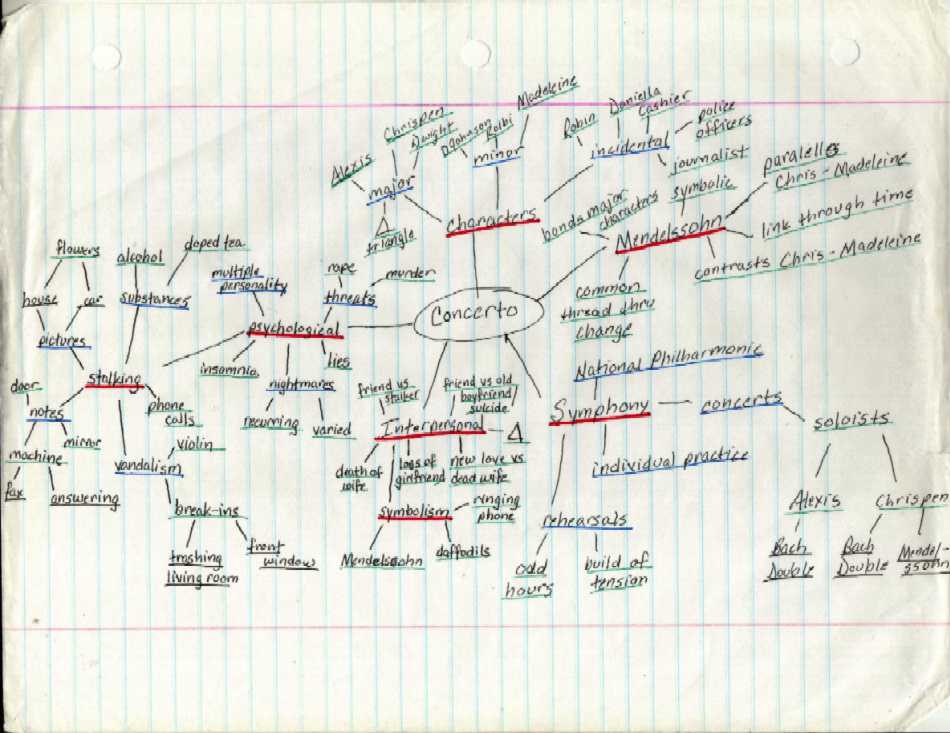 Concerto
Characters
major
Alexis
Chrispen
Dwight
Δ
triangle
minor
D Johnson
Bolbi
Madeleine
incidental
Robin
Daniella
Cashier
police
officers
journalist
Mendelssohn
bonds major
characters
symbolic
paralelles
Chris - Madeleine
link through time
contrasts Chris - Madeleine
common
thread thru
change
Symphony
National Philharmonic
concerts
soloists
Alexis
Bach
Double
Chrispen
Bach
Double
Mendel-
ssohn
individual practice
rehearsals
odd
hours
build of
tension
Interpersonal
friend vs
stalker
friend vs old
boyfriend
suicide
Δ
death of
wife
loss of
girlfriend
new love vs
dead wife
symbolism
ringing
phone
Mendelssohn
daffodils
psychological
multiple
personality
threats
rape
murder
lies
insomnia
nightmares
recurring
varied
stalking
substances
alcohol
doped tea
pictures
house
car
flowers
notes
door
mirror
machine
fax
answering
phone
calls
vandalism
violin
break-ins
trashing
living room
front
window